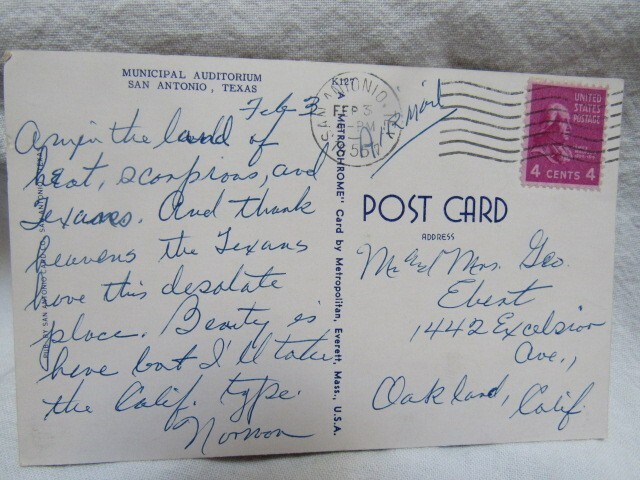 MUNICIPAL AUDITORIUM
SAN ANTONIO, TEXAS
Feb 3
Am in the land of
heat, scorpions, and
Texans. And thank
heavens the Texans
have this desolate
place. Beauty is
here but I'll take
the Calif. type.
Norman
K127
A "METROCHROME" Card by Metropolitan, Everett, Mass., U.S.A.
SAN ANTONIO
FEB 3
PM
Air Mail
UNITED
STATES
POSTAGE
4 CENTS 4
POST CARD
ADDRESS
Mr and Mrs. Geo.
Ebert
1442 Excelsior
Ave.,
Oakland, Calif.